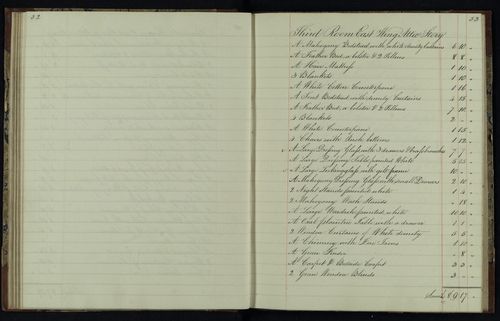 32
33
Third Room East Wing Attic Story
A Mahogany Bedstead with white dimity Curtains 6 10 -
A Feather Bed, a bolster & 2 Pillows 8 8 -
A Hair Mattress 1 10 -
3 Blankets 1 10 -
A White Cotton Counterpane 1 16 -
A Tent Bedstead with dimity Curtains 4 15 -
A Feather Bed, a bolster & 2 Pillows 7 10 -
4 Blankets 2 - -
A White Counterpane 1 15 -
4 Chairs with Rush bottoms 1 12 -
A Large Dressing Glass with 3 drawers & 7 7 -
A Large Dressing Table painted White
A Large Looking glass with gilt frame 10 - -
A Mahogany Dressing Glass with small Drawers 2 10 -
2 Night Stands painted white 1 4 -
2 Mahogany Wash Stands - 18 -
A Large Wardrobe painted white 10 10 -
A Oak Table with a drawer 1 1 -
2 Window Curtains of White dimity 5 5 -
A Chimney with Fire Irons 1 10 -
A Green Fender - 8 -
A Carpet & Bedside Carpet 3 3 -
2 Green Window Blinds 3 - -